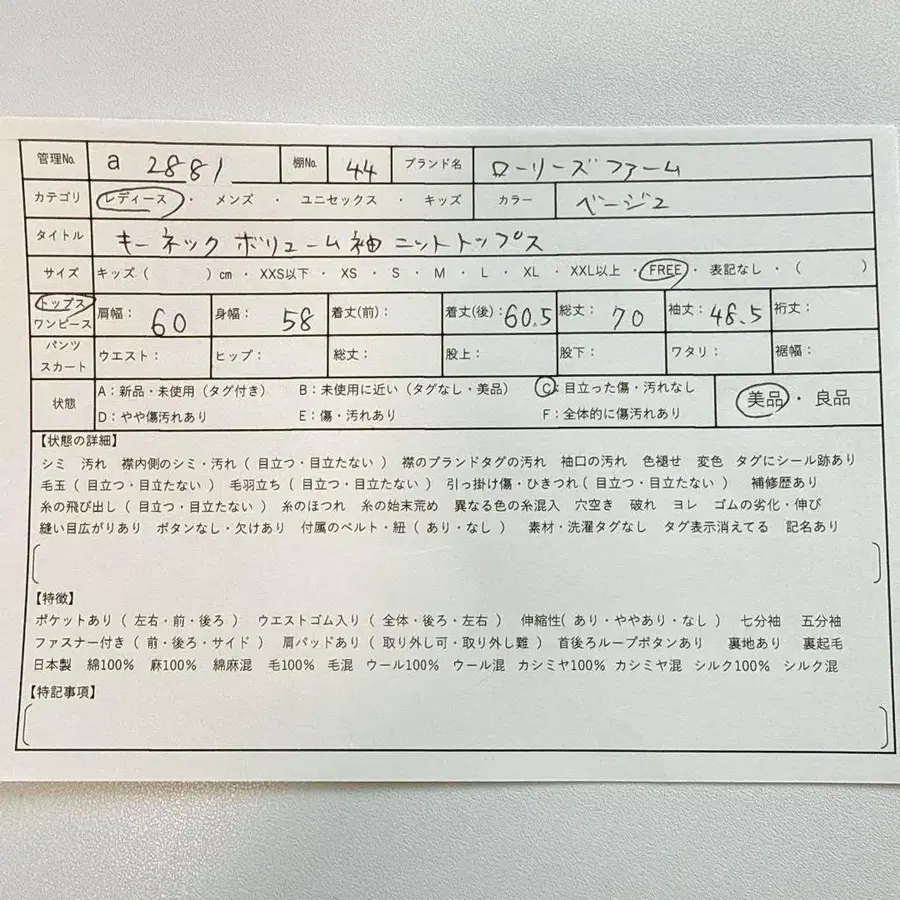 管理No. a 2881 棚No. 44 ブランド名 ローリーズファーム
カテゴリ レディース ・ メンズ ・ ユニセックス ・ キッズ カラー ベージュ
タイトル キーネック ボリューム袖 ニットトップス
サイズ キッズ ( ) cm ・ XXS以下 ・ XS ・ S ・ M ・ L ・ XL ・ XXL以上 ・ FREE ・ 表記なし ・ ( )
トップス ワンピース 肩幅: 60 身幅: 58 着丈(前): 着丈(後): 60.5 総丈: 70 袖丈: 48.5 裄丈:
パンツ スカート ウエスト: ヒップ: 総丈: 股上: 股下: ワタリ: 裾幅:
状態 A:新品・未使用(タグ付き) B:未使用に近い(タグなし・美品) C:目立った傷・汚れなし
D:やや傷汚れあり E:傷・汚れあり F:全体的に傷汚れあり 美品 ・ 良品
【状態の詳細】
シミ 汚れ 襟内側のシミ・汚れ ( 目立つ・目立たない ) 襟のブランドタグの汚れ 袖口の汚れ 色褪せ 変色 タグにシール跡あり
毛玉 ( 目立つ・目立たない ) 毛羽立ち ( 目立つ・目立たない ) 引っ掛け傷・ひきつれ ( 目立つ・目立たない ) 補修歴あり
糸の飛び出し ( 目立つ・目立たない ) 糸のほつれ 糸の始末荒め 異なる色の糸混入 穴空き 破れ ヨレ ゴムの劣化・伸び
縫い目広がりあり ボタンなし・欠けあり 付属のベルト・紐 ( あり・なし ) 素材・洗濯タグなし タグ表示消えてる 記名あり
【特徴】
ポケットあり ( 左右・前・後ろ ) ウエストゴム入り ( 全体・後ろ・左右 ) 伸縮性( あり・ややあり・なし ) 七分袖 五分袖
ファスナー付き ( 前・後ろ・サイド ) 肩パッドあり ( 取り外し可・取り外し難 ) 首後ろループボタンあり 裏地あり 裏起毛
日本製 綿100% 麻100% 綿麻混 毛100% 毛混 ウール100% ウール混 カシミヤ100% カシミヤ混 シルク100% シルク混
【特記事項】